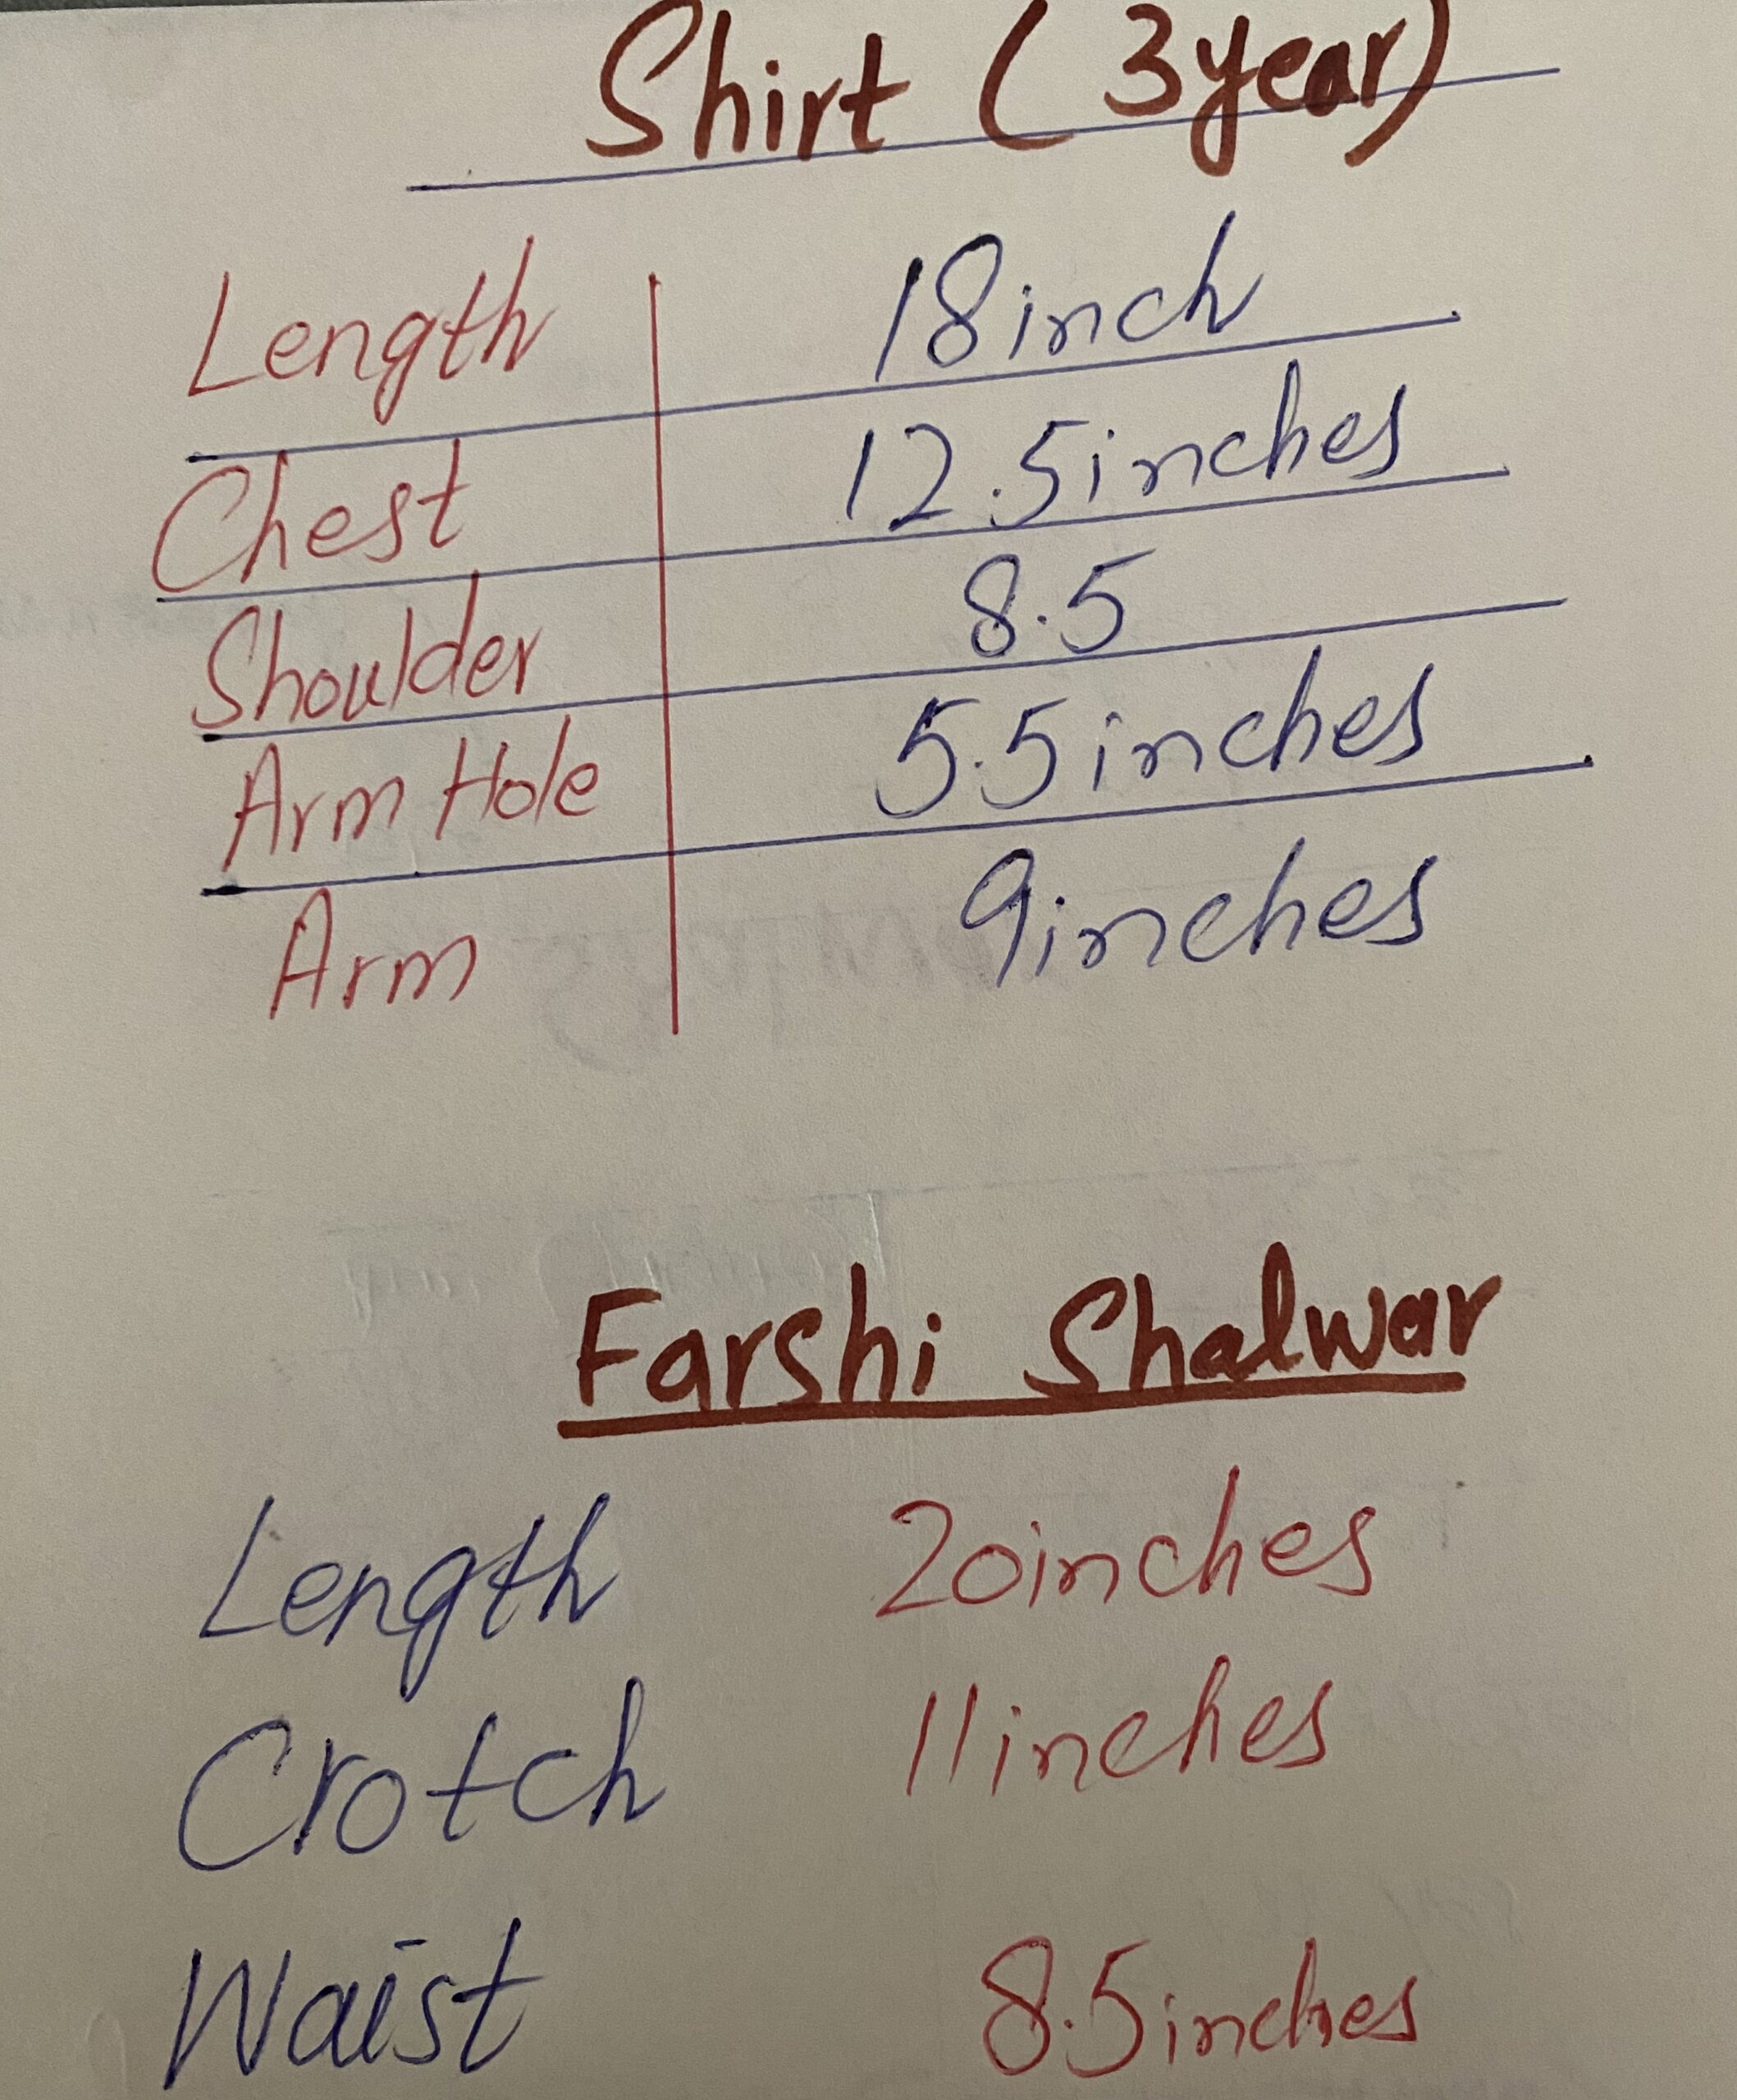 Shirt (3year)
Length 18inch
Chest 12.5inches
Shoulder 8.5
Arm Hole 5.5inches
Arm 9inches
Farshi Shalwar
Length 20inches
Crotch 11inches
Waist 8.5inches